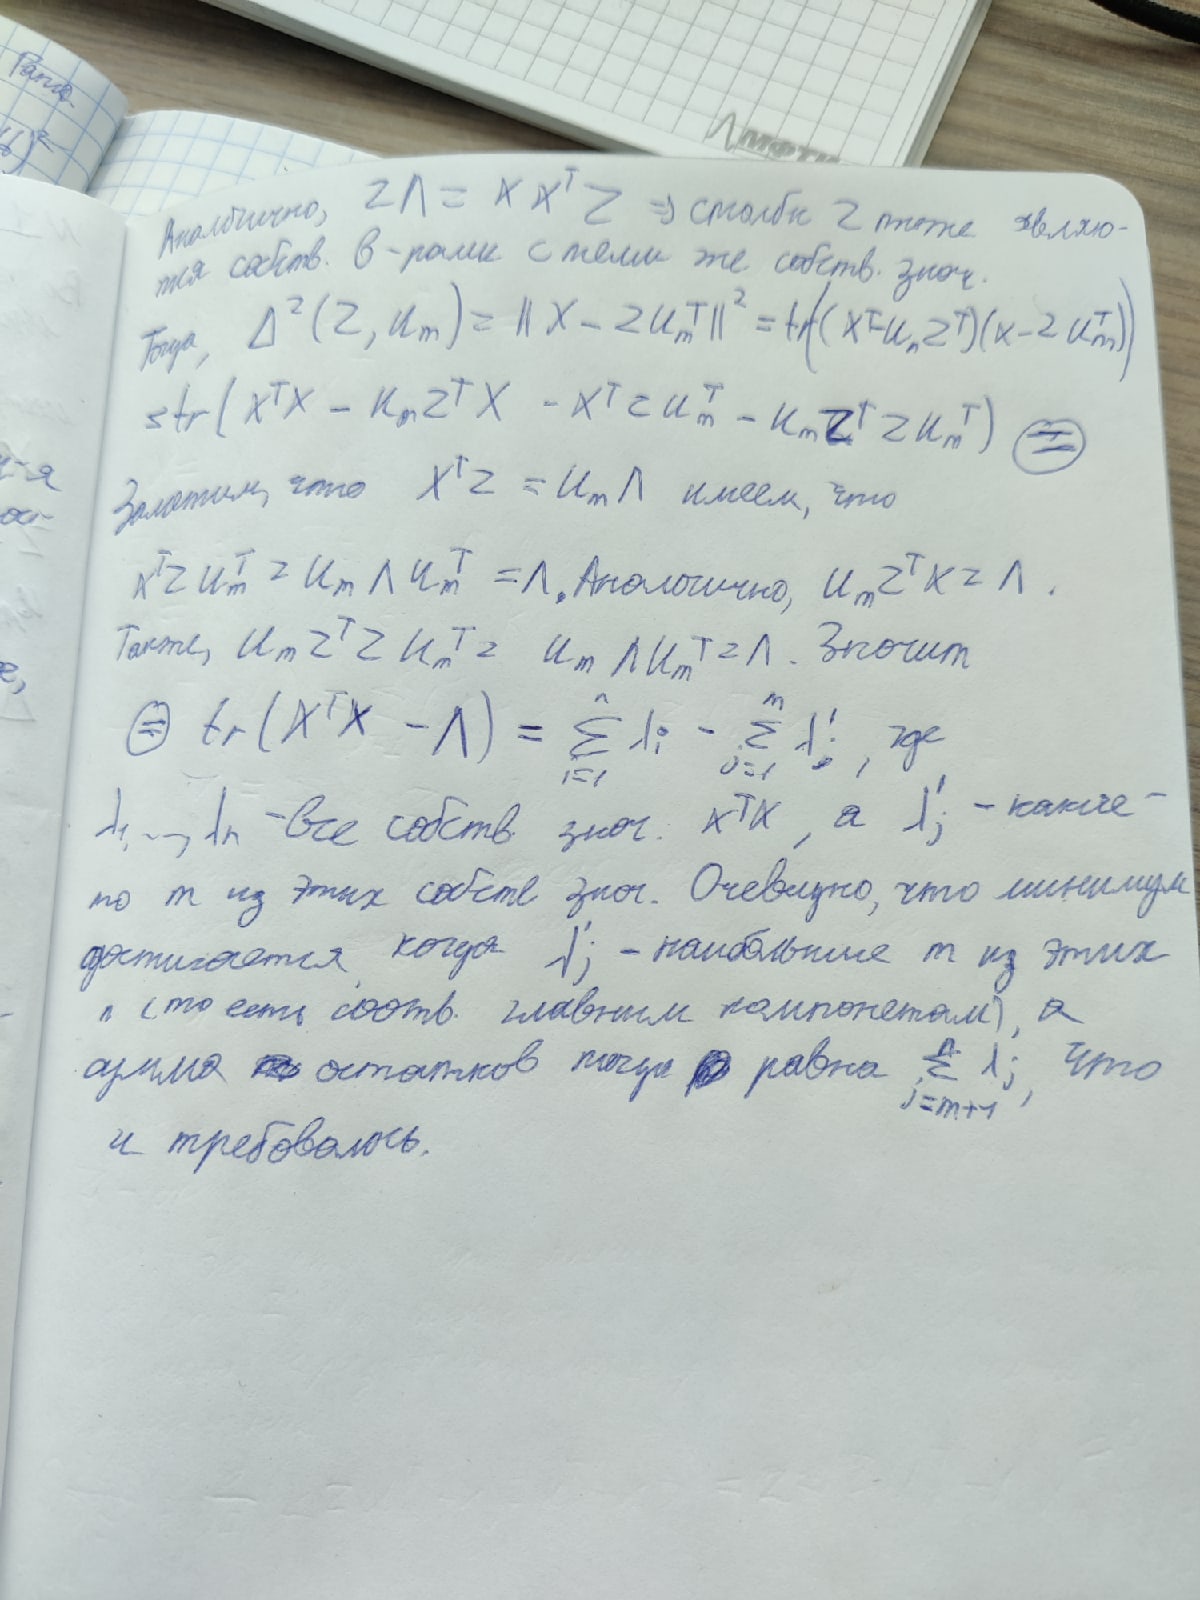 Рата
МФТИ
Аналогично, ZΛ = X XᵀZ ⇒ столбы Z тоже являю-
тся собств. в-рами с теми же собств. знач.
Тогда, Δ²(Z, Uₘ) = ‖X − ZUₘᵀ‖² = tr((Xᵀ − UₙZᵀ)(X − ZUₘᵀ))
= tr(XᵀX − UₘZᵀX − XᵀZUₘᵀ − UₘZᵀZUₘᵀ) ⊜
Заметим, что XᵀZ = UₘΛ имеем, что
XᵀZUₘᵀ = UₘΛUₘᵀ = Λ. Аналогично, UₘZᵀX = Λ.
Также, UₘZᵀZUₘᵀ = UₘΛUₘᵀ = Λ. Значит
⊜ tr(XᵀX − Λ) = Σⁿᵢ₌₁ λᵢ − Σᵐⱼ₌₁ λ'ⱼ, где
λ₁, ..., λₙ - все собств. знач. XᵀX, а λ'ⱼ - какие-
то m из этих собств знач. Очевидно, что минимум
достигается, когда λ'ⱼ - наибольшие m из этих
n (то есть соотв. главным компонетам), а
сумма остатков тогда равна Σⁿⱼ₌ₘ₊₁ λⱼ, что
и требовалось.